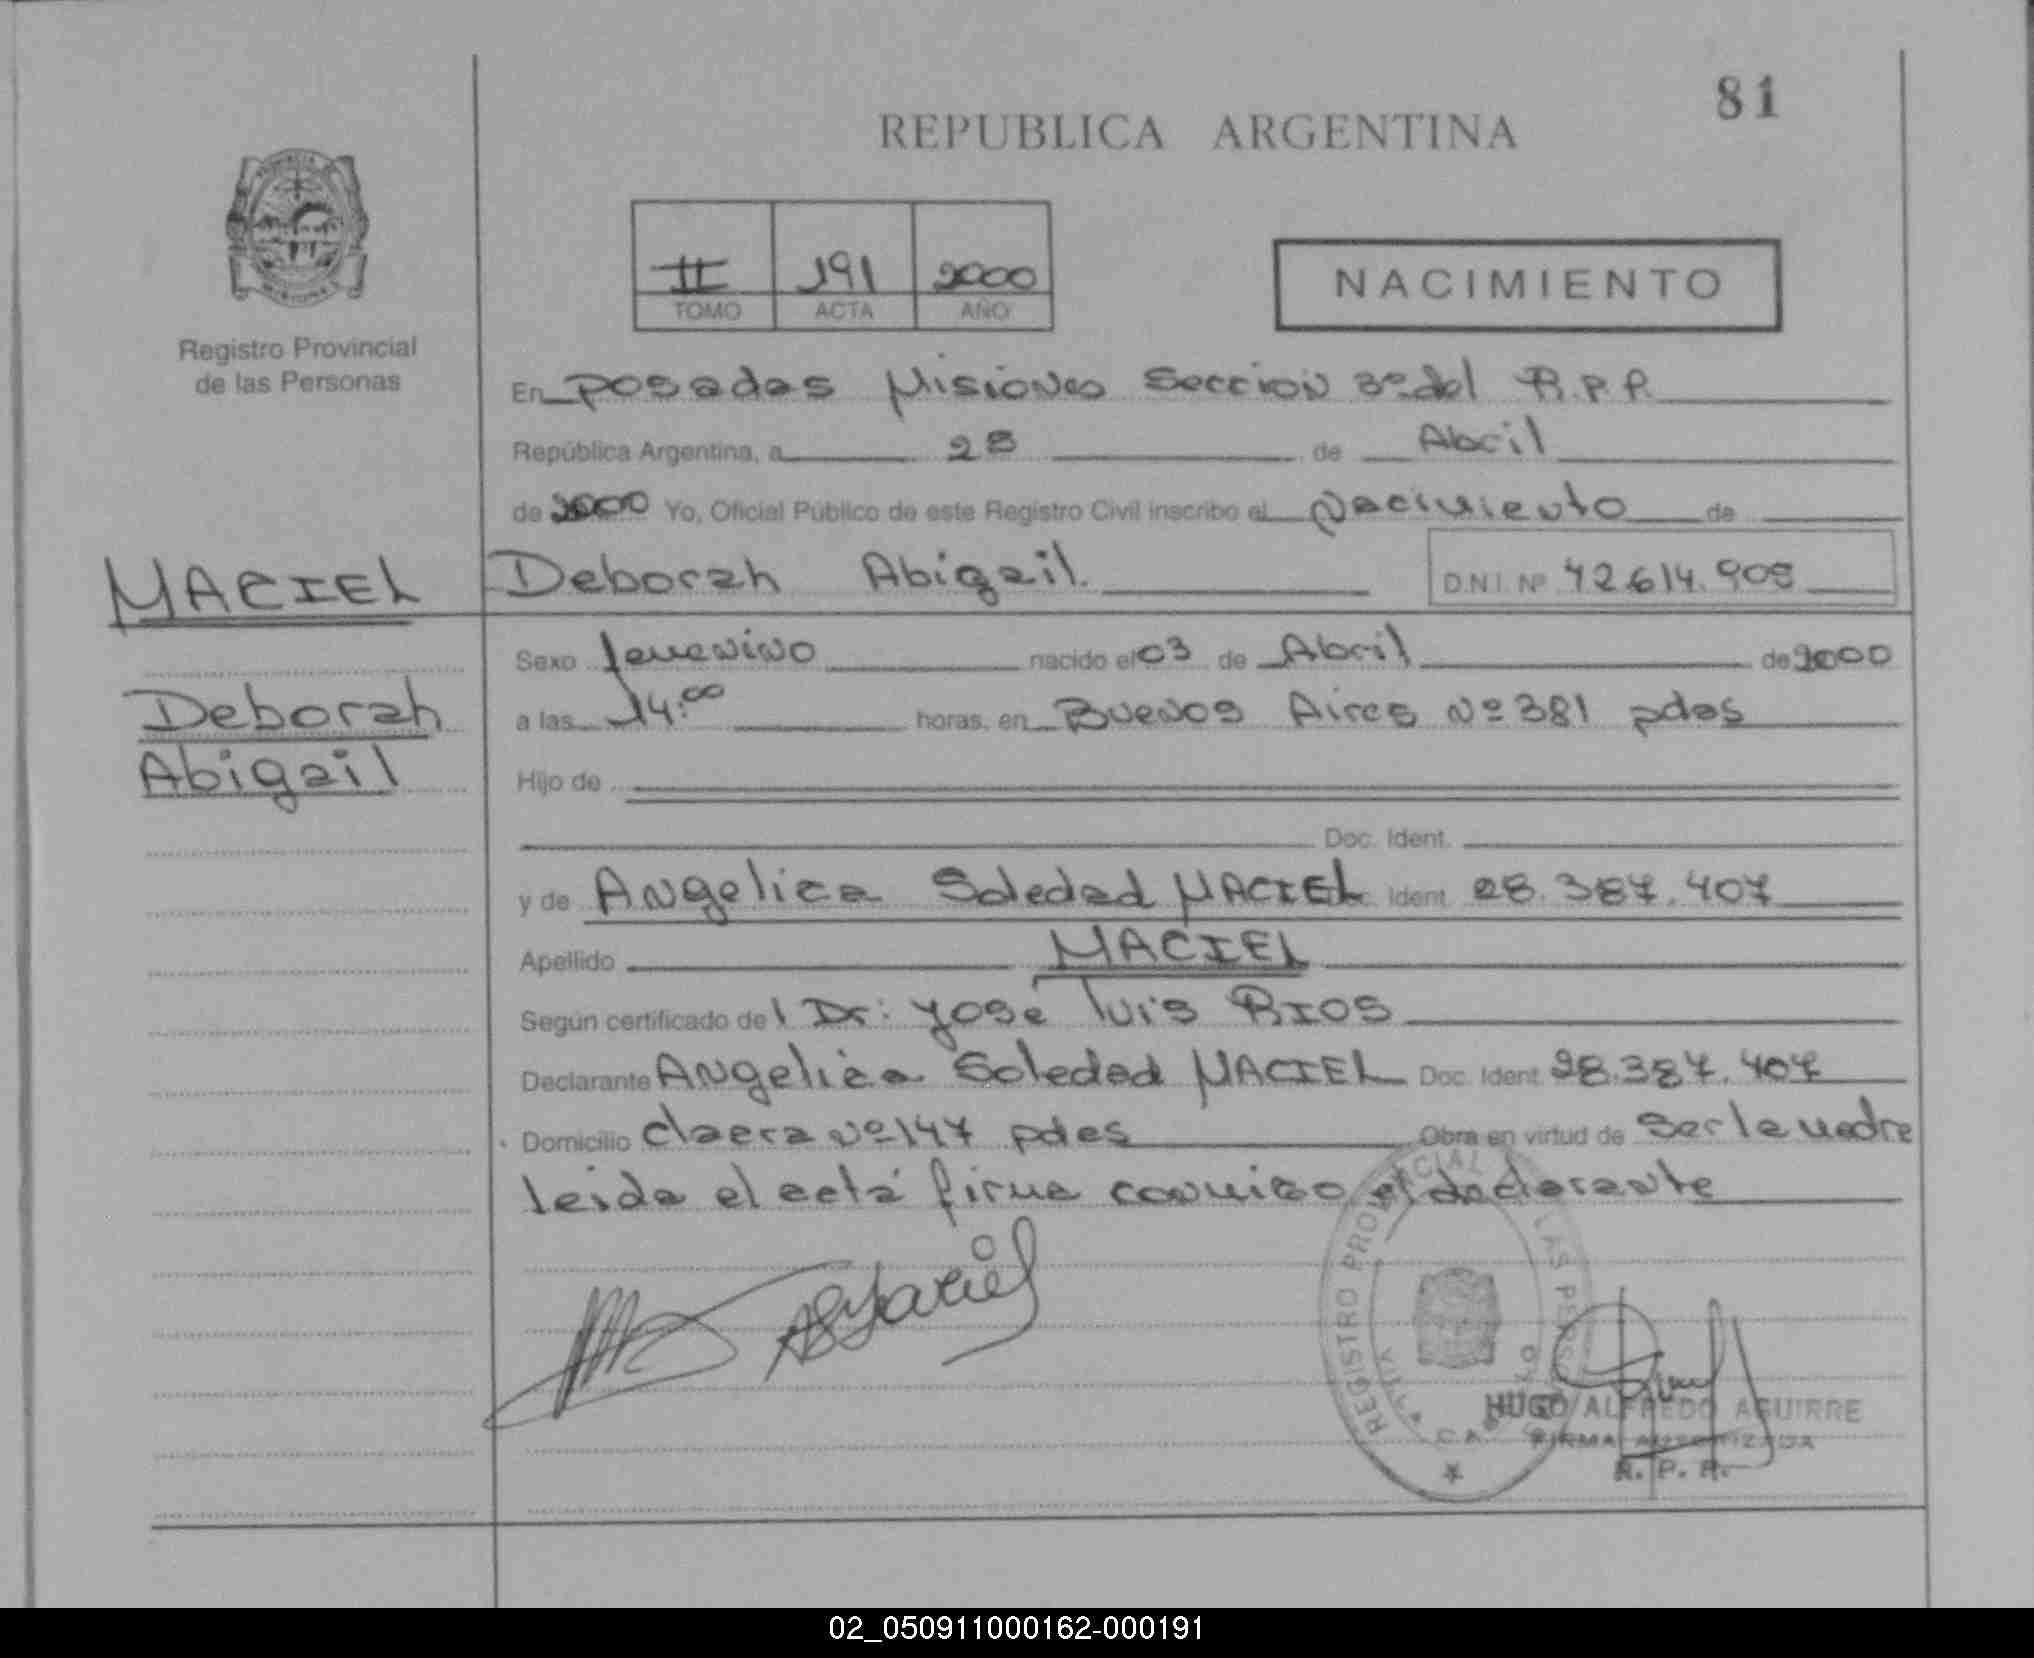 81
REPUBLICA ARGENTINA
II 191 2000
TOMO ACTA AÑO
NACIMIENTO
Registro Provincial
de las Personas
En Posadas Misiones Seccion 3º del R.P.P.
República Argentina, a 28 de Abril
de 2000 Yo, Oficial Público de este Registro Civil inscribo el Nacimiento de
MACIEL
Deborah Abigail. D.N.I. Nº 42.614.909
Deborah
Abigail
Sexo femenino nacido el 03 de Abril de 2000
a las 14:00 horas, en Buenos Aires Nº 381 pdas
Hijo de
Doc. Ident.
y de Angelica Soledad MACIEL Doc. Ident. 28.387.407
Apellido MACIEL
Según certificado del Dr: José luis RIOS
Declarante Angelica Soledad MACIEL Doc. Ident. 28.387.407
Domicilio Nº 147 pdas Obra en virtud de Ser la madre
leida el acta firma conmigo el declarante
REGISTRO PROVINCIAL LAS PERSONAS
HUGO ALFREDO AGUIRRE
FIRMA AUTORIZADA
R. P. P.
02_050911000162-000191